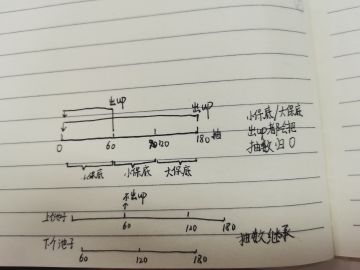 出up
出up
小保底/大保底
出up都会把
抽数归0
0
60
120
180 抽
小保底
小保底
大保底
不出up
上个池子
60
120
180
抽数继承
下个池子
60
120
180